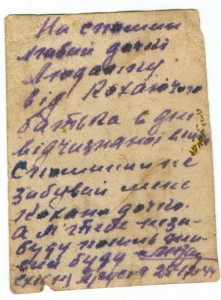 На спомин
любий дочці
Людочку
від кохаючого
батька в дні
відчизняної вій
Спомни не
забувай мене
кохана дочко.
А я тебе неза
буду покиль жи
вий буду
25